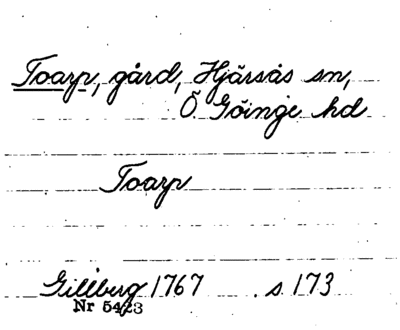 Toarp, gård, Hjärsås sn,
Ö. Göinge hd
Toarp
Gillberg 1767 s. 173
Nr 5423